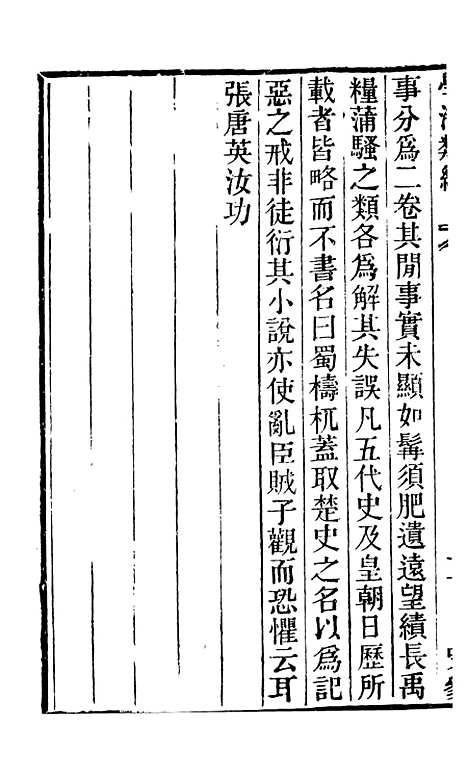 事分爲二卷其閒事實未顯如髯須肥遺遠望績長禹
糧蒲騷之類各爲解其失誤凡五代史及皇朝日歷所
載者皆略而不書名曰蜀檮杌蓋取楚史之名以爲記
惡之戒非徒衍其小說亦使亂臣賊子觀而恐懼云耳
張唐英汝功